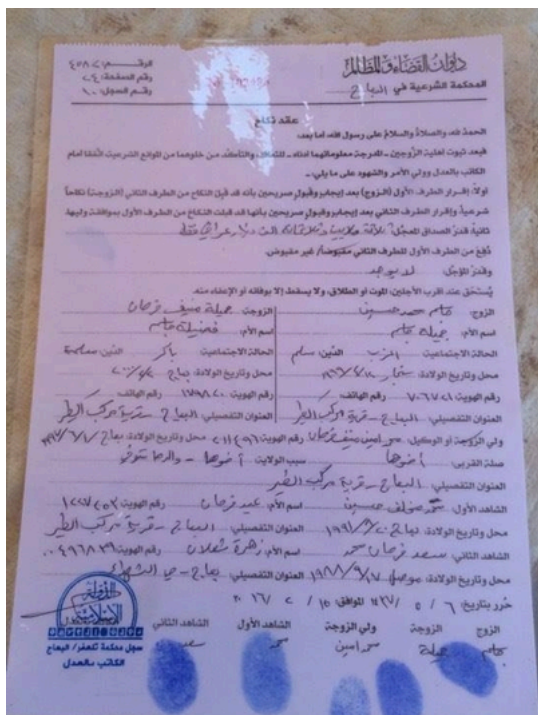 ديوان القضاء والمظالم
المحكمة الشرعية في البعاج
الرقم: ٤٥٨٧
رقم الصفحة: ٢٤
رقم السجل: ٩٠
عقد نكاح
الحمدُ لله والصلاةُ والسلامُ على رسول الله، أما بعد:
فبعد ثبوت أهلية الزوجين - المدرجة معلوماتهما أدناه - للتعاقد والتأكد من خلوهما من الموانع الشرعية اتفقا أمام
الكاتب بالعدل وولي الأمر والشهود على ما يلي:-
أولاً: إقرار الطرف الأول (الزوج) بعد إيجاب وقبول صريحين بأنه قد قَبِلَ النكاح من الطرف الثاني (الزوجة) نكاحاً
شرعياً وإقرار الطرف الثاني بعد إيجاب وقبول صريحين بأنها قد قبلت النكاح من الطرف الأول بموافقة وليها.
ثانياً: قدرُ الصداق المعجل: ثلاثة ملايين وثلاثمائة الف دينار عراقي فقط
دُفِعَ من الطرف الأول للطرف الثاني مقبوض/ غير مقبوض.
وقدرُ المؤجل: لا يوجد
يُستحق عند اقرب الأجلين، الموت أو الطلاق، ولا يسقط إلا بوفائه أو الإعفاء منه.
الزوج: محمد حسين الزوجة: جميلة منيف فرحان
اسم الأم: جميلة اسم الأم: فضيلة
الحالة الاجتماعية: اعزب الدين: مسلم الحالة الاجتماعية: باكر الدين: مسلمة
محل وتاريخ الولادة: محل وتاريخ الولادة: بعاج
رقم الهوية: ٧٠٦٧٢١ رقم الهاتف: رقم الهوية: رقم الهاتف:
العنوان التفصيلي: البعاج - قرية مركب الطير العنوان التفصيلي: البعاج - قرية مركب الطير
ولي الزوجة أو الوكيل: محمد امين منيف فرحان رقم الهوية: محل وتاريخ الولادة: بعاج
صلة القربى: أخوها سبب الولاية: أخوها - والدها متوفي
العنوان التفصيلي: البعاج - قرية مركب الطير
الشاهد الأول: محمد خلف حسين اسم الأم: عيد فرحان رقم الهوية:
محل وتاريخ الولادة: بعاج العنوان التفصيلي: البعاج - قرية مركب الطير
الشاهد الثاني: سعد فرحان محمد اسم الأم: زهرة شعلان رقم الهوية: ٠٠٤٩٦٨٣٩
محل وتاريخ الولادة: موصل ١٩٨٨/٩/١٧ العنوان التفصيلي: بعاج - حي الشهداء
حُرر بتاريخ: ٦ / ٥ / ١٤٣٧ الموافق: ١٥ / ٢ / ٢٠١٦
الزوج الزوجة ولي الزوجة الشاهد الأول الشاهد الثاني
جميلة محمد امين محمد سعد
الدولة
الإسلامية
سجل محكمة تلعفر/ البعاج
الكاتب بالعدل